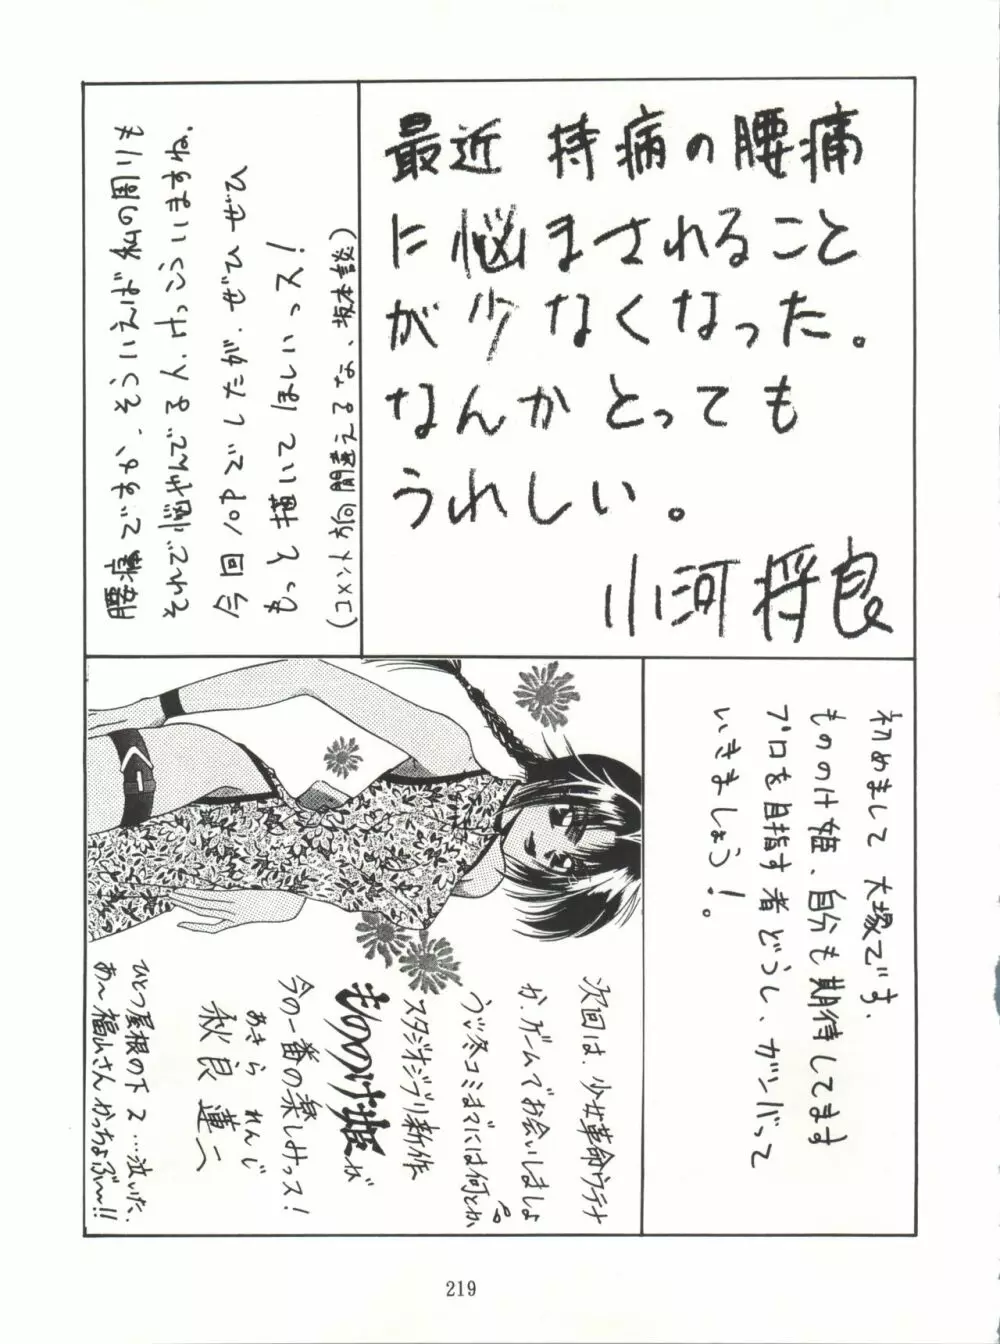 最近 持病の腰痛
に悩まされること
が少なくなった。
なんかとっても
うれしい。
小河将良
腰痛ですか、そういえば私の周りも
それで悩やんでる人、けっこういますね。
今回1ºPでしたが、ぜひぜひ
もっと描いてほしいっス!
(コメント方向間違えるな、坂本談)
初めまして 大塚です。
もののけ姫、自分も期待してます
プロを目指す者どうし、ガンバって
いきましょう!。
次回は、少女革命ウテナ
か、ゲームでお会いしましょ
う♡冬コミまでには何とか
スタジオジブリ新作
もののけ姫が
今の一番の楽しみっス!
あきら れんじ
秋良 蓮二
ひとつ屋根の下2…泣いた。
あ〜福山さんかっちょぶ〜!!
219